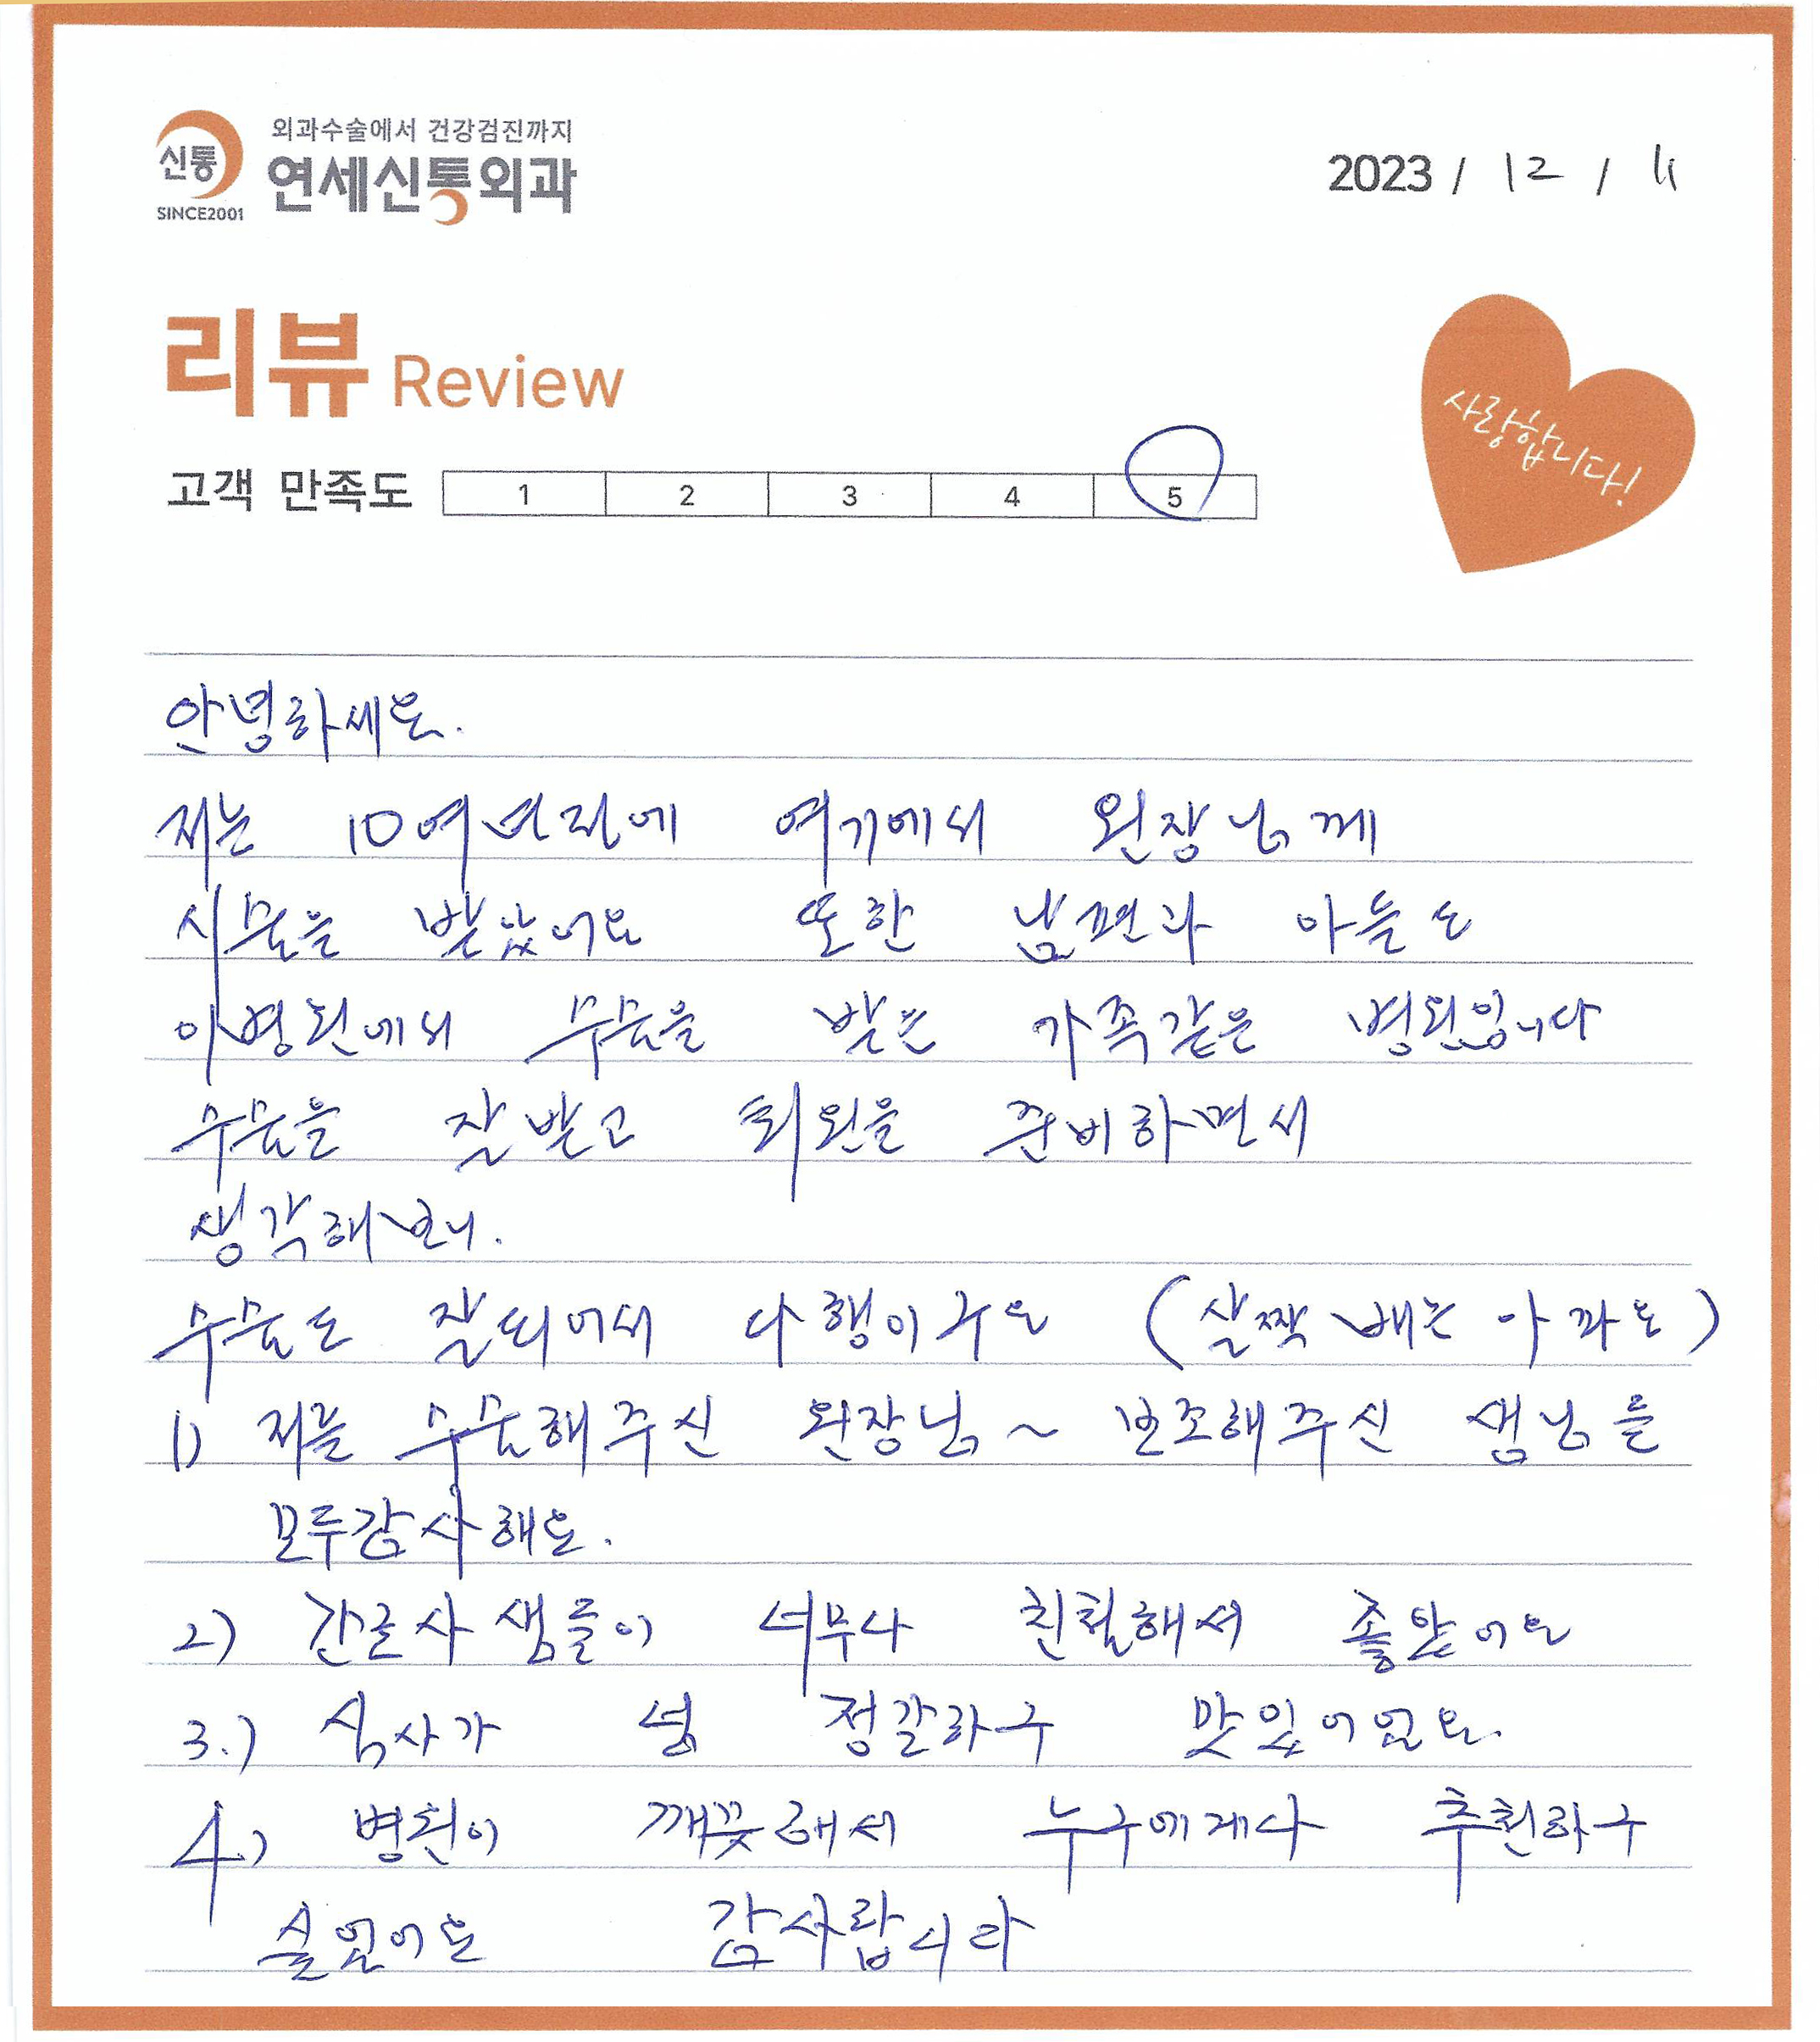 외과수술에서 건강검진까지
신통
연세신통외과
SINCE2001
2023 / 12 / 11
리뷰 Review
사랑합니다!
고객 만족도 1 2 3 4 5
안녕하세요.
저는 10여년전에 여기에서 원장님께
시술을 받았어요 또한 남편과 아들도
이병원에서 수술을 받은 가족같은 병원입니다
수술을 잘받고 퇴원을 준비하면서
생각해보니.
수술도 잘되어서 다행이구요 (살짝 배는 아파도)
1) 저를 수술해주신 원장님~ 보조해주신 샘님들
모두감사해요.
2) 간호사샘들이 너무나 친절해서 좋았어요
3.) 식사가 넘 정갈하구 맛있어었요.
4.) 병원이 깨끗해서 누구에게다 추천하구
싶었어요 감사합니다